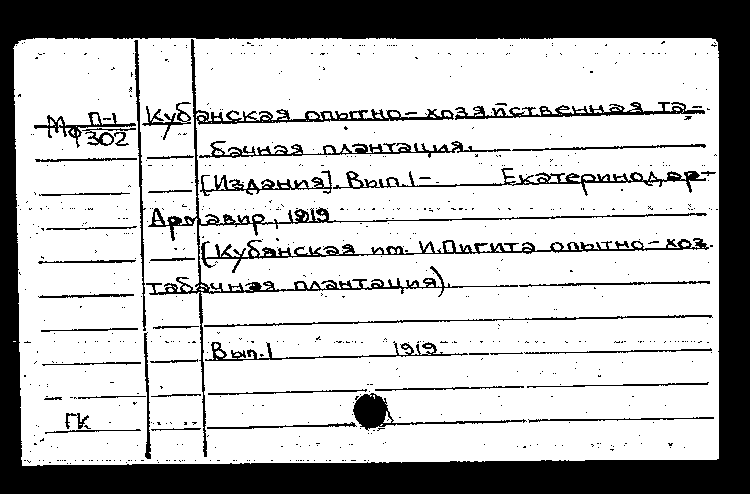 Мф П-1/302
Кубанская опытно-хозяйственная та-
бачная плантация.
[Издания]. Вып.1- Екатеринодар-
Армавир, 1919
(Кубанская им. И.Пигита опытно-хоз.
табачная плантация).
Вып.1 1919.
ГК